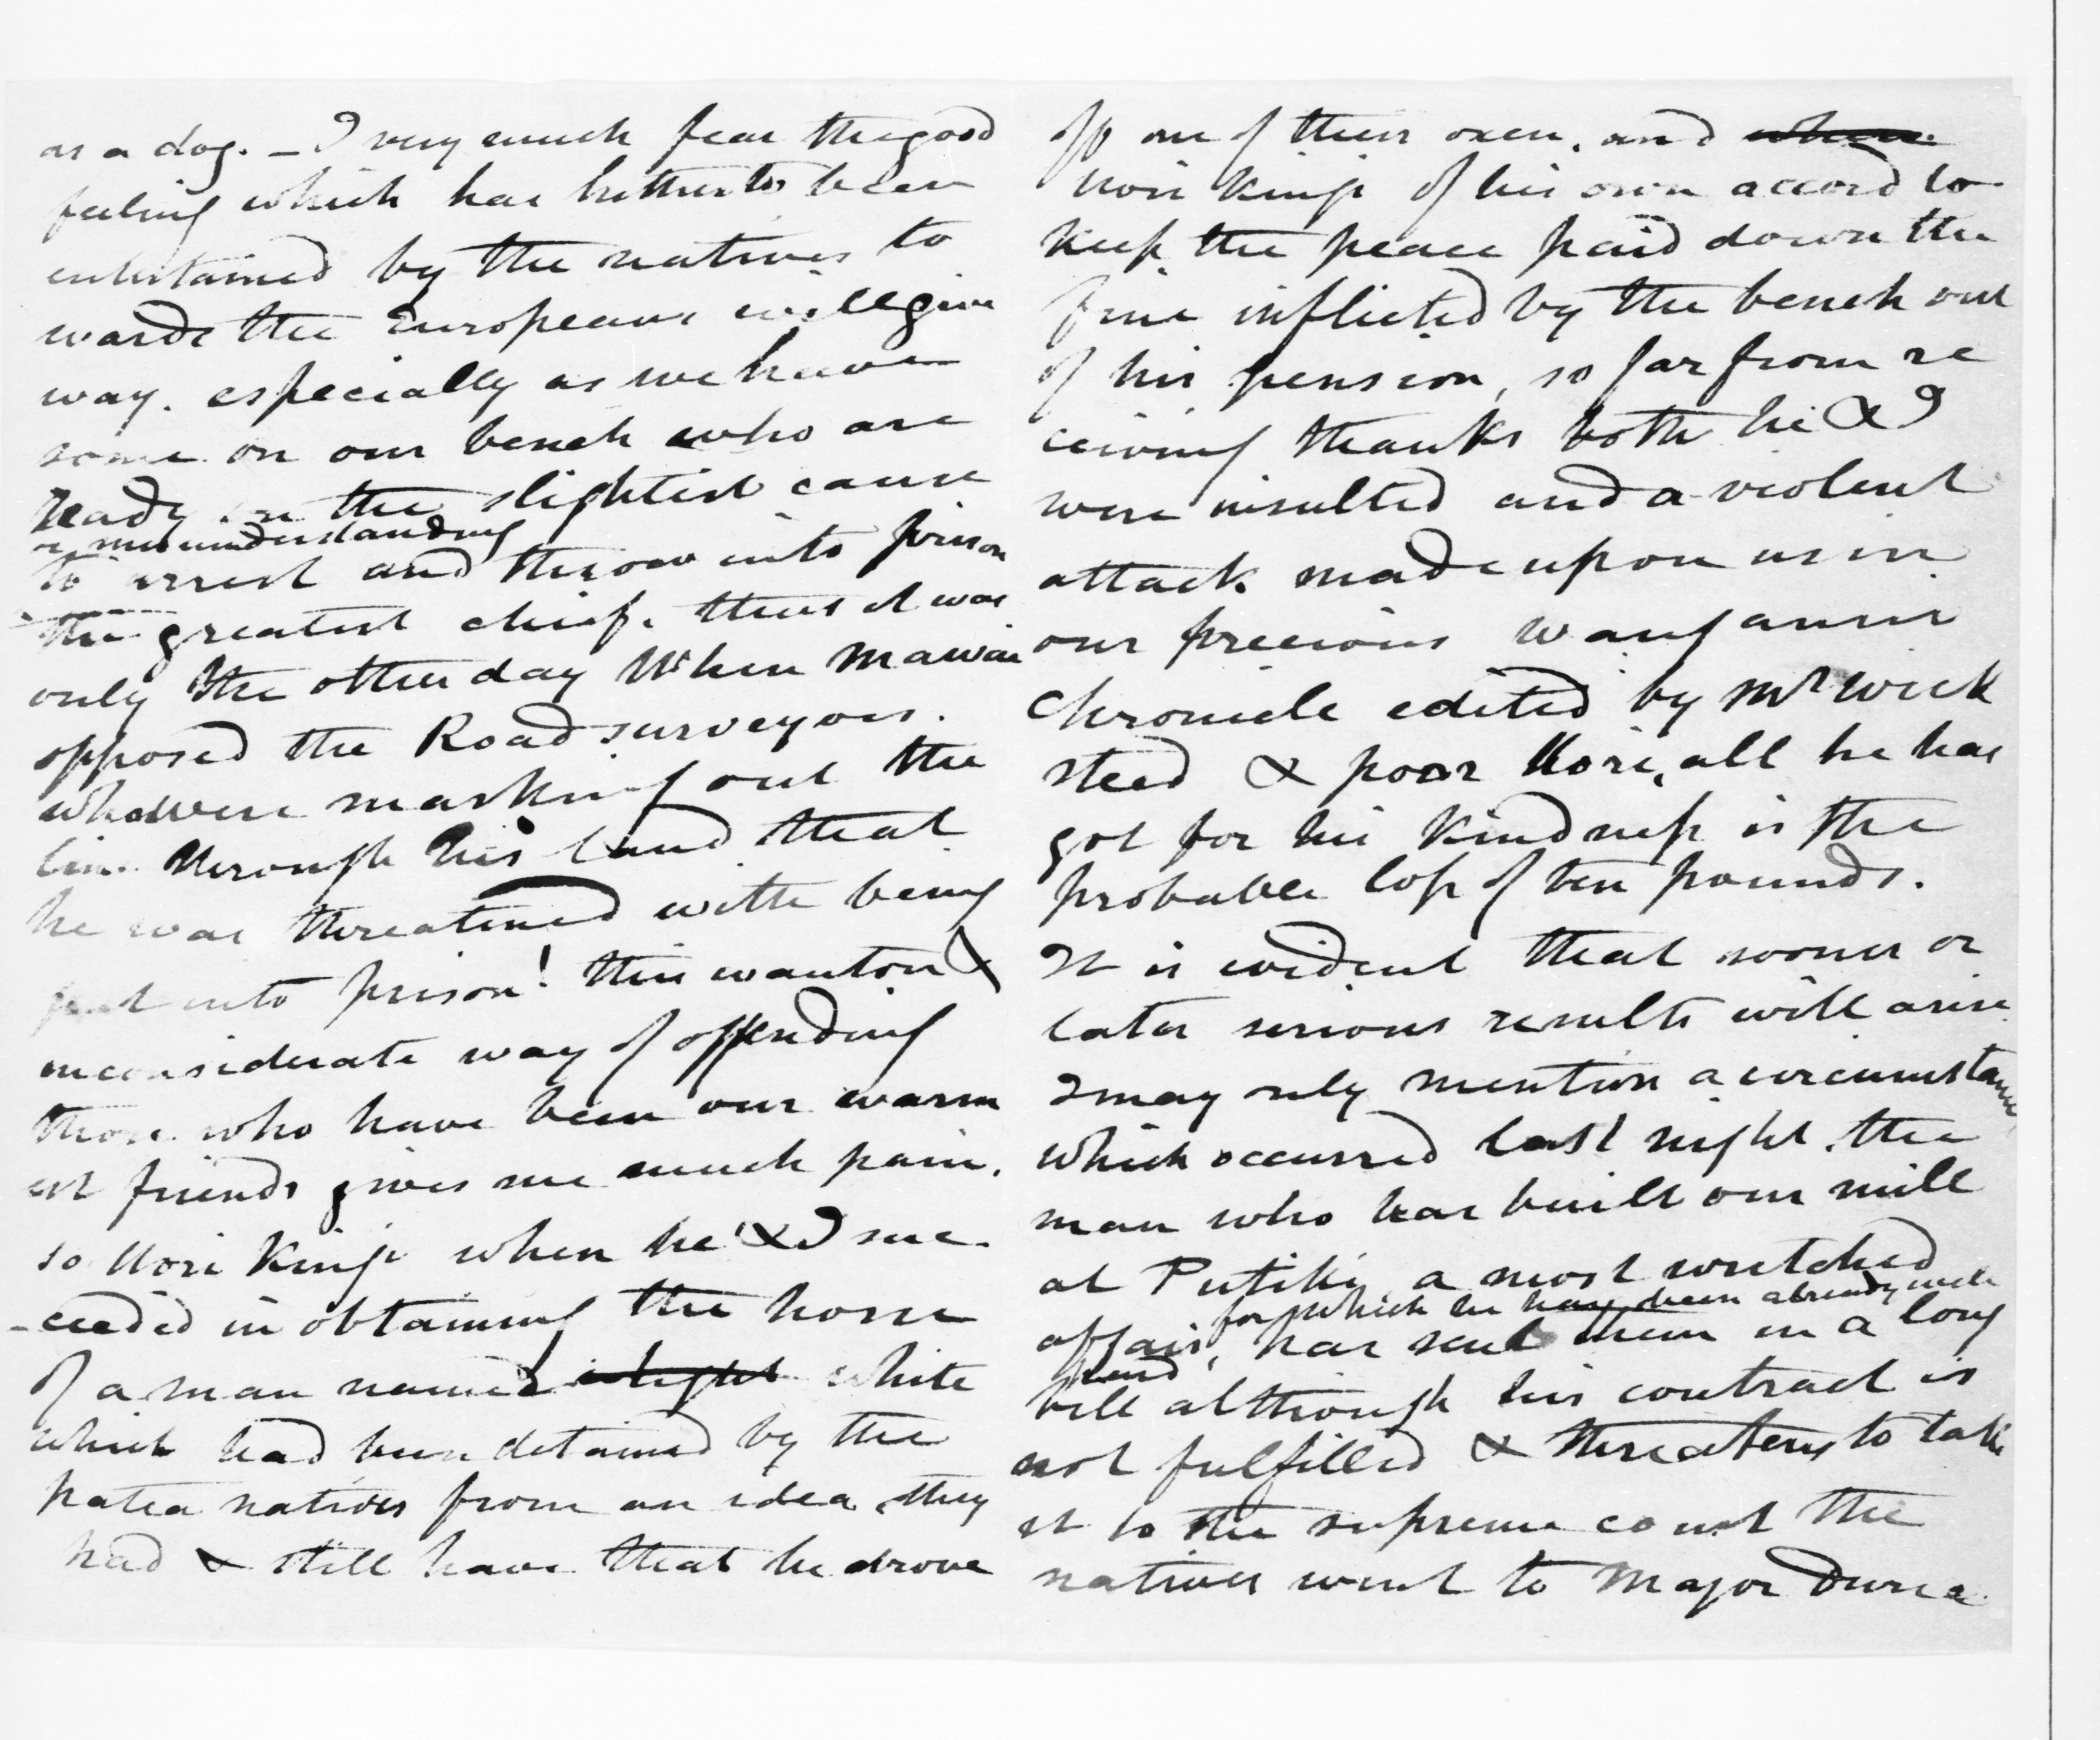 as a dog. – I very much fear the good
feeling which has hitherto been
entertained by the natives to
wards the Europeans will give
way. especially as we have
some on our bench who are
ready on the slightest cause
or misunderstanding
to arrest and throw into prison
the greatest chief. thus it was
only the other day when Mawai
opposed the Road surveyors.
who were marking out the
line through his land that
he was threatened with being
put into prison! this wanton &
inconsiderate way of offending
those who have been our warm
est friends gives me much pain.
so Hori Kingi when he & I suc
-ceeded in obtaining the horse
of a man named white
which had been detained by the
patea natives from an idea they
had & still have that he drove
off one of their oxen. and when
Hori Kingi of his own accord to
keep the peace paid down the
fine inflicted by the bench out
of his pension, so far from re
ceiving thanks both he & I
were insulted and a violent
attack made upon us in
our precious Wanganui
Chronicle edited by Mr Wick
steed & poor Hori, all he has
got for his kindness is the
probable loss of ten pounds.
It is evident that sooner or
later serious results will arise
I may only mention a circumstance
which occurred last night. the
man who has built our mill
at Putiki, a most wretched
for which he has been already well
affair, has sent them in a long
paid
bill although his contract is
not fulfilled & threatens to take
it to the supreme court the
natives went to Major Durie